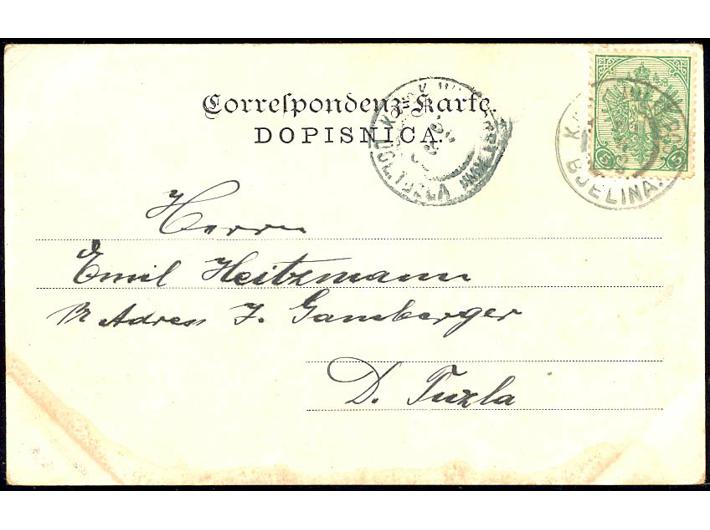 Correspondenz-Karte.
DOPISNICA.
BJELINA
5 5
Herrn
Emil Heitzmann
pr Adress J. Gansberger
D. Tuzla